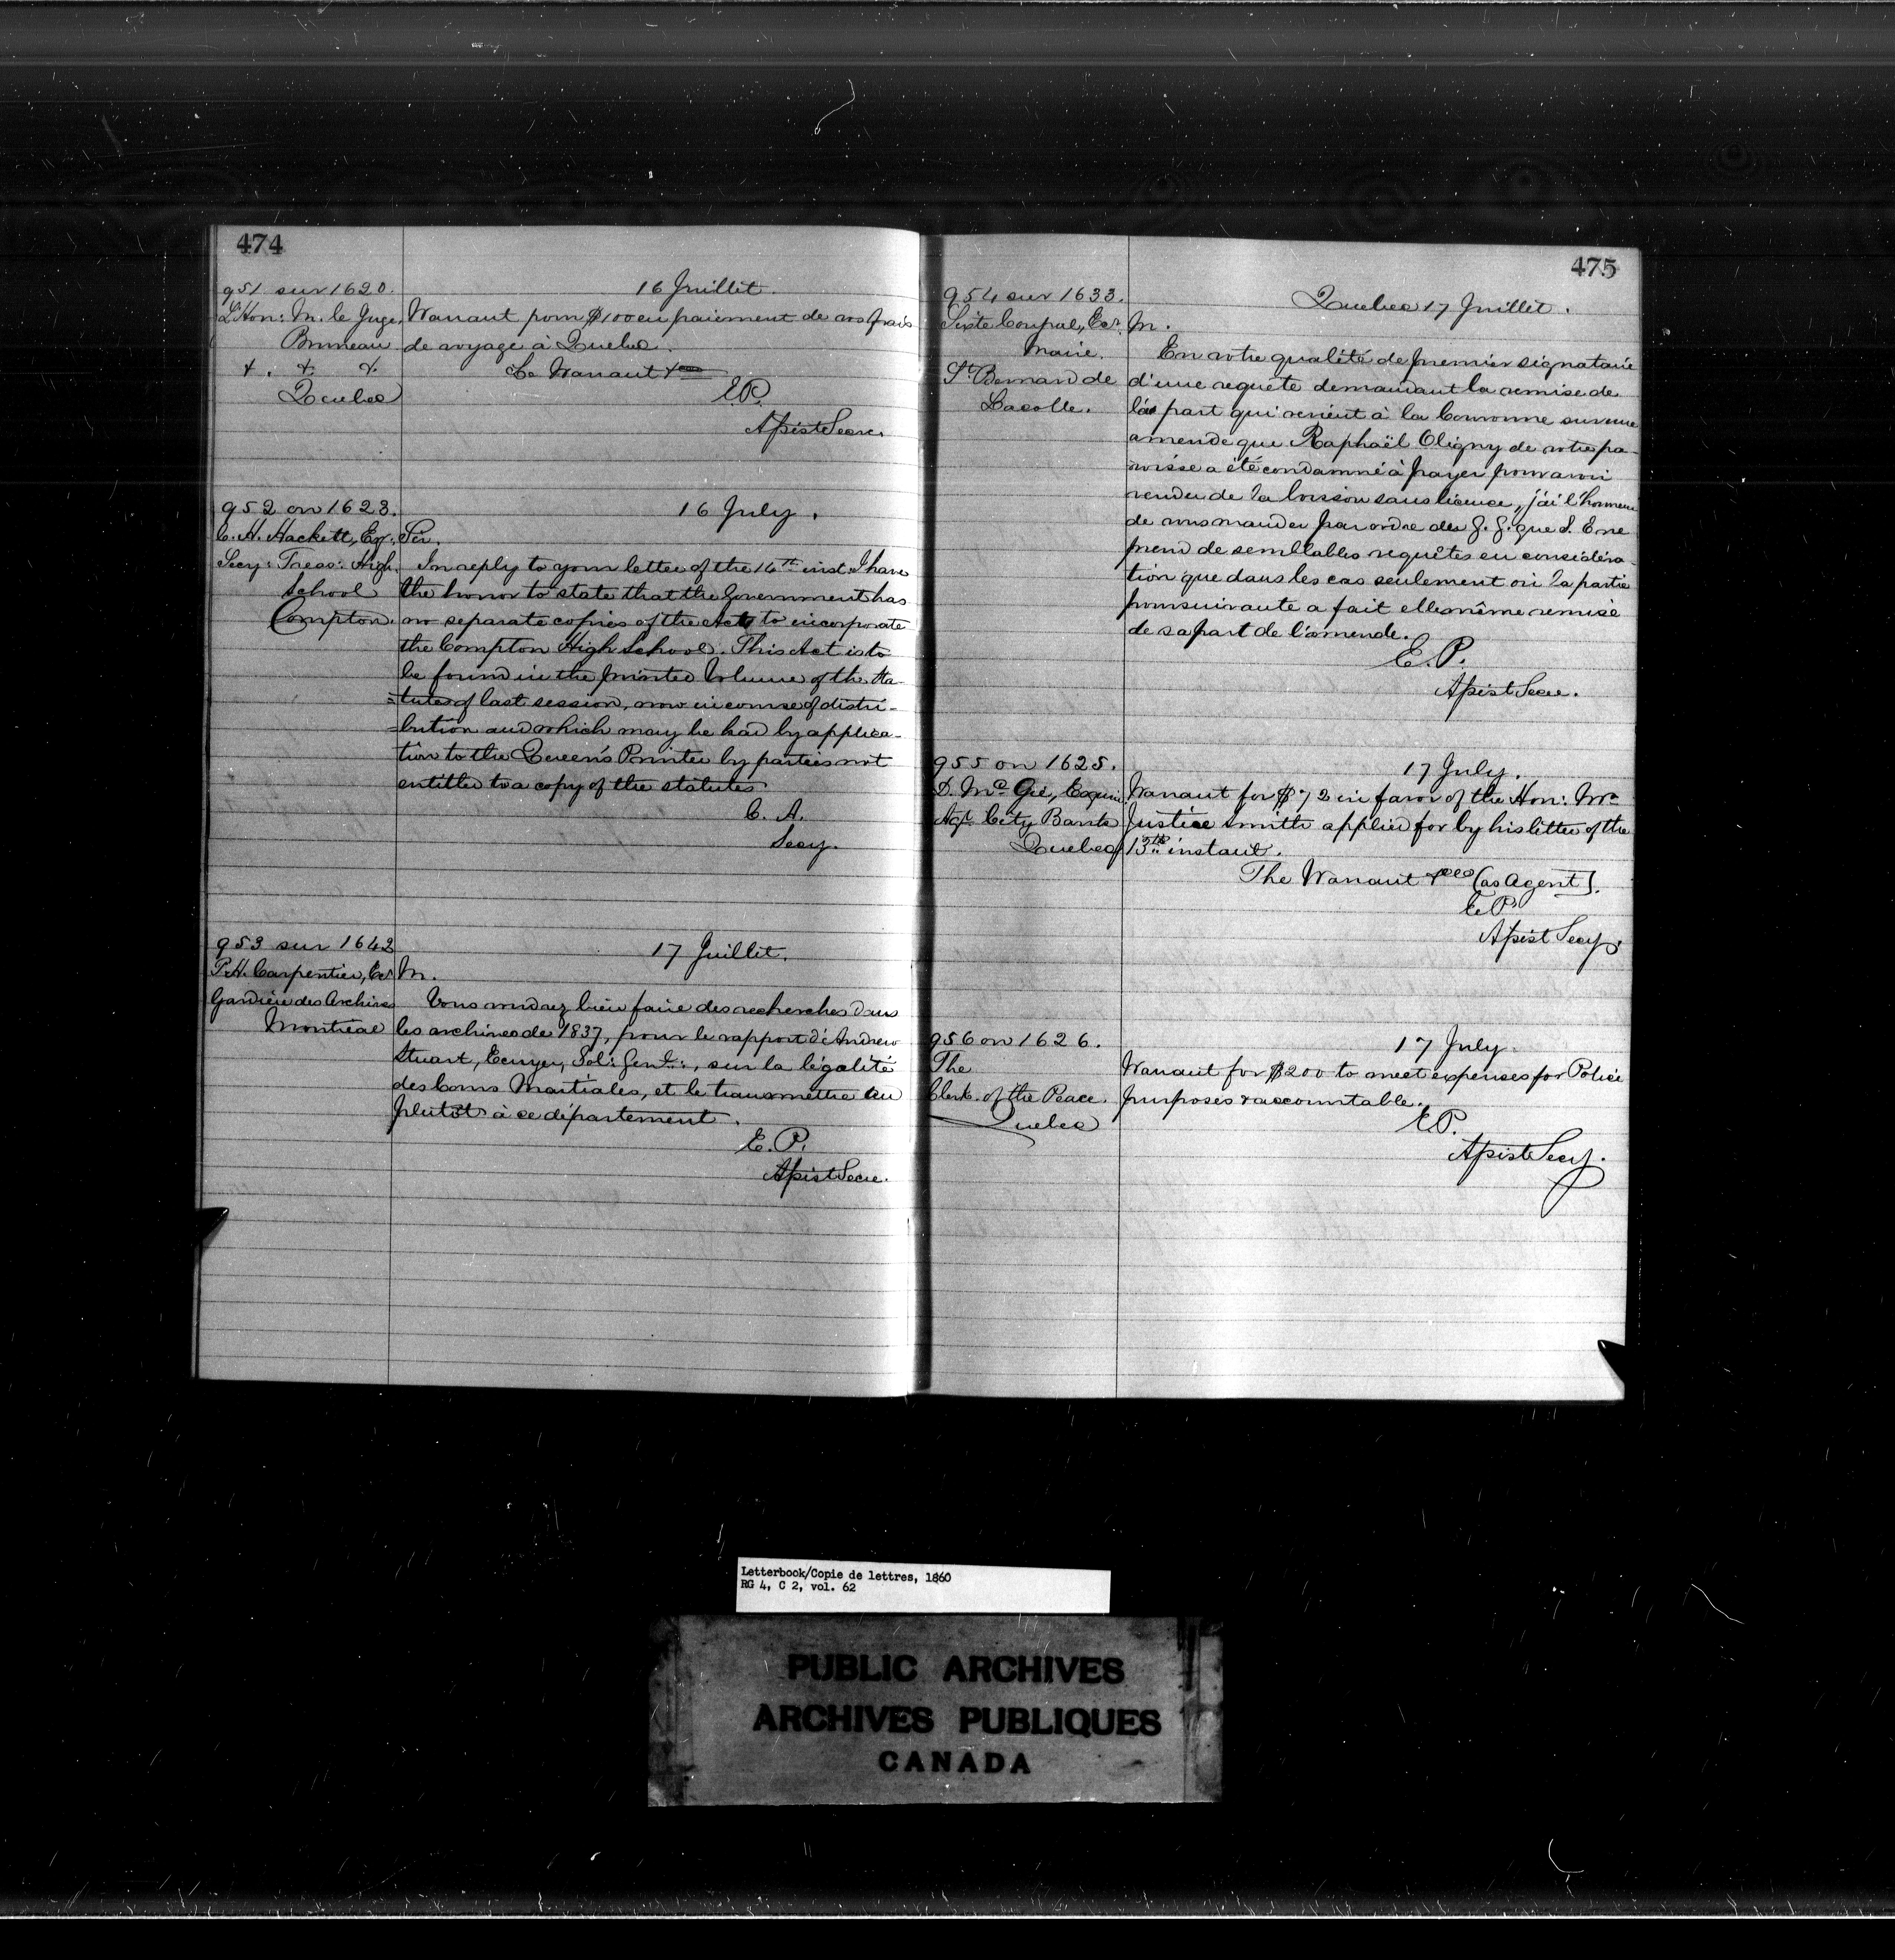 474
951 sur 1620.
16 Juillet.
L'Hon: M. le Juge
Bruneau
&. &. &.
Quebec
Warrant pour $100 en paiement de vos frais
de voyage à Quebec.
Le Warrant &ca
E.P.
Assist Secre.
952 on 1623.
16 July.
C. A. Hackett, Esqr.
Secy: Treas: High
School
Compton.
Sir.
In reply to your letter of the 14th inst I have
the honor to state that the Government has
no separate copies of the Act to incorporate
the Compton High School. This Act is to
be found in the printed Volume of the Sta-
=tutes of last session, now in course of distri-
=bution and which may be had by applica-
tion to the Queen's Printer by parties not
entitled to a copy of the statutes
C. A.
Secy.
953 sur 1642
17 Juillet.
P.H. Carpentier, Ecr
Gardien des Archives
Montréal
M.
Vous voudrez bien faire des recherches dans
les archives de 1837, pour le rapport d'Andrew
Stuart, Ecuyer, Sol: Genl:, sur la légalité
des Cours Martiales, et le transmettre au
plutôt à ce département.
E. P.
Assist Secre.
475
954 sur 1633.
Quebec 17 Juillet.
Sixte Coupal, Ecr.
Maire.
St Bernard de
Lacolle.
M.
En votre qualité de premier signataire
d'une requête demandant la remise de
la part qui revient à la Couronne sur une
amende que Raphaël Oligny de votre pa-
roisse a été condamné à payer pour avoir
vendu de la boisson sans licence, j'ai l'honneur
de vous mander par ordre du G. G. que S. E ne
prend de semblables requêtes en considéra-
tion que dans les cas seulement où la partie
poursuivante a fait elle même remise
de sa part de l'amende.
E. P.
Assist Secre.
955 on 1625.
17 July.
D. McGie, Esquire
Agt. City Bank
Quebec
Warrant for $72 in favor of the Hon: Mr
Justice Smith applied for by his letter of the
13th instant.
The Warrant &ca (as Agent).
E. P.
Assist Secy.
956 on 1626.
17 July.
The
Clerk of the Peace
Quebec
Warrant for $200 to meet expenses for Police
purposes & accountable.
E.P.
Assist Secy.
Letterbook/Copie de lettres, 1860
RG 4, C 2, vol. 62
PUBLIC ARCHIVES
ARCHIVES PUBLIQUES
CANADA